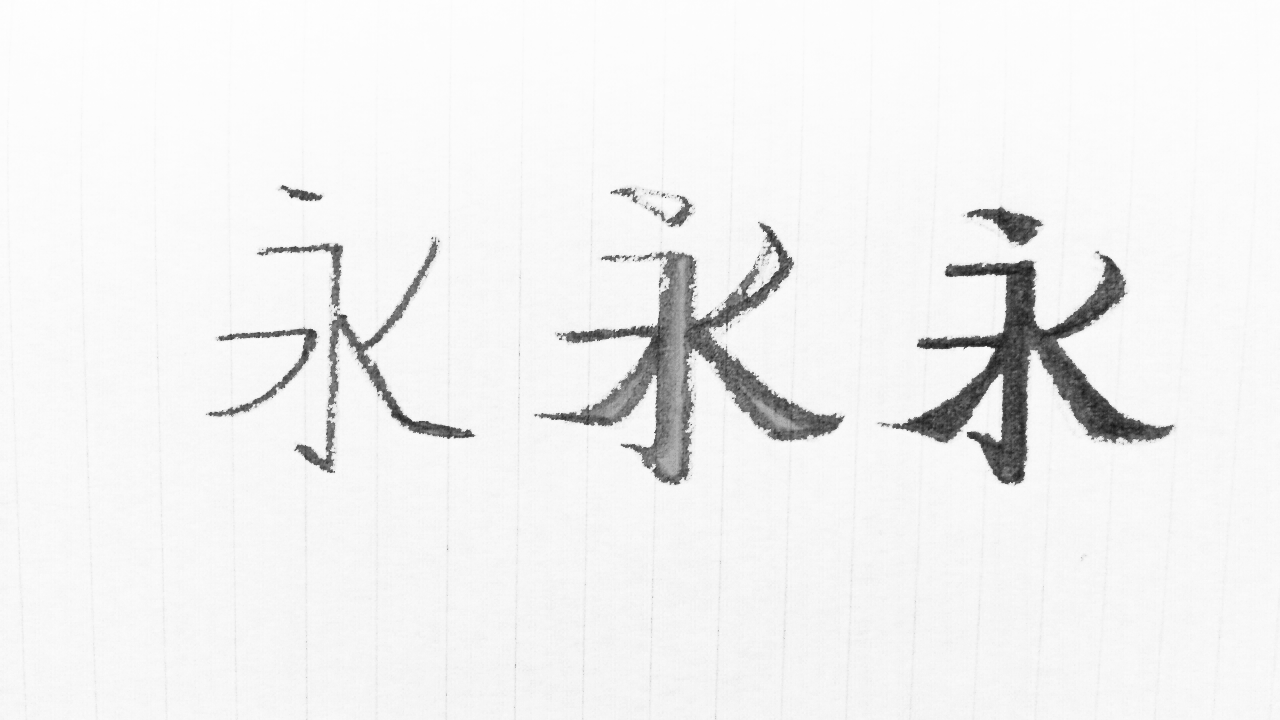 永永永